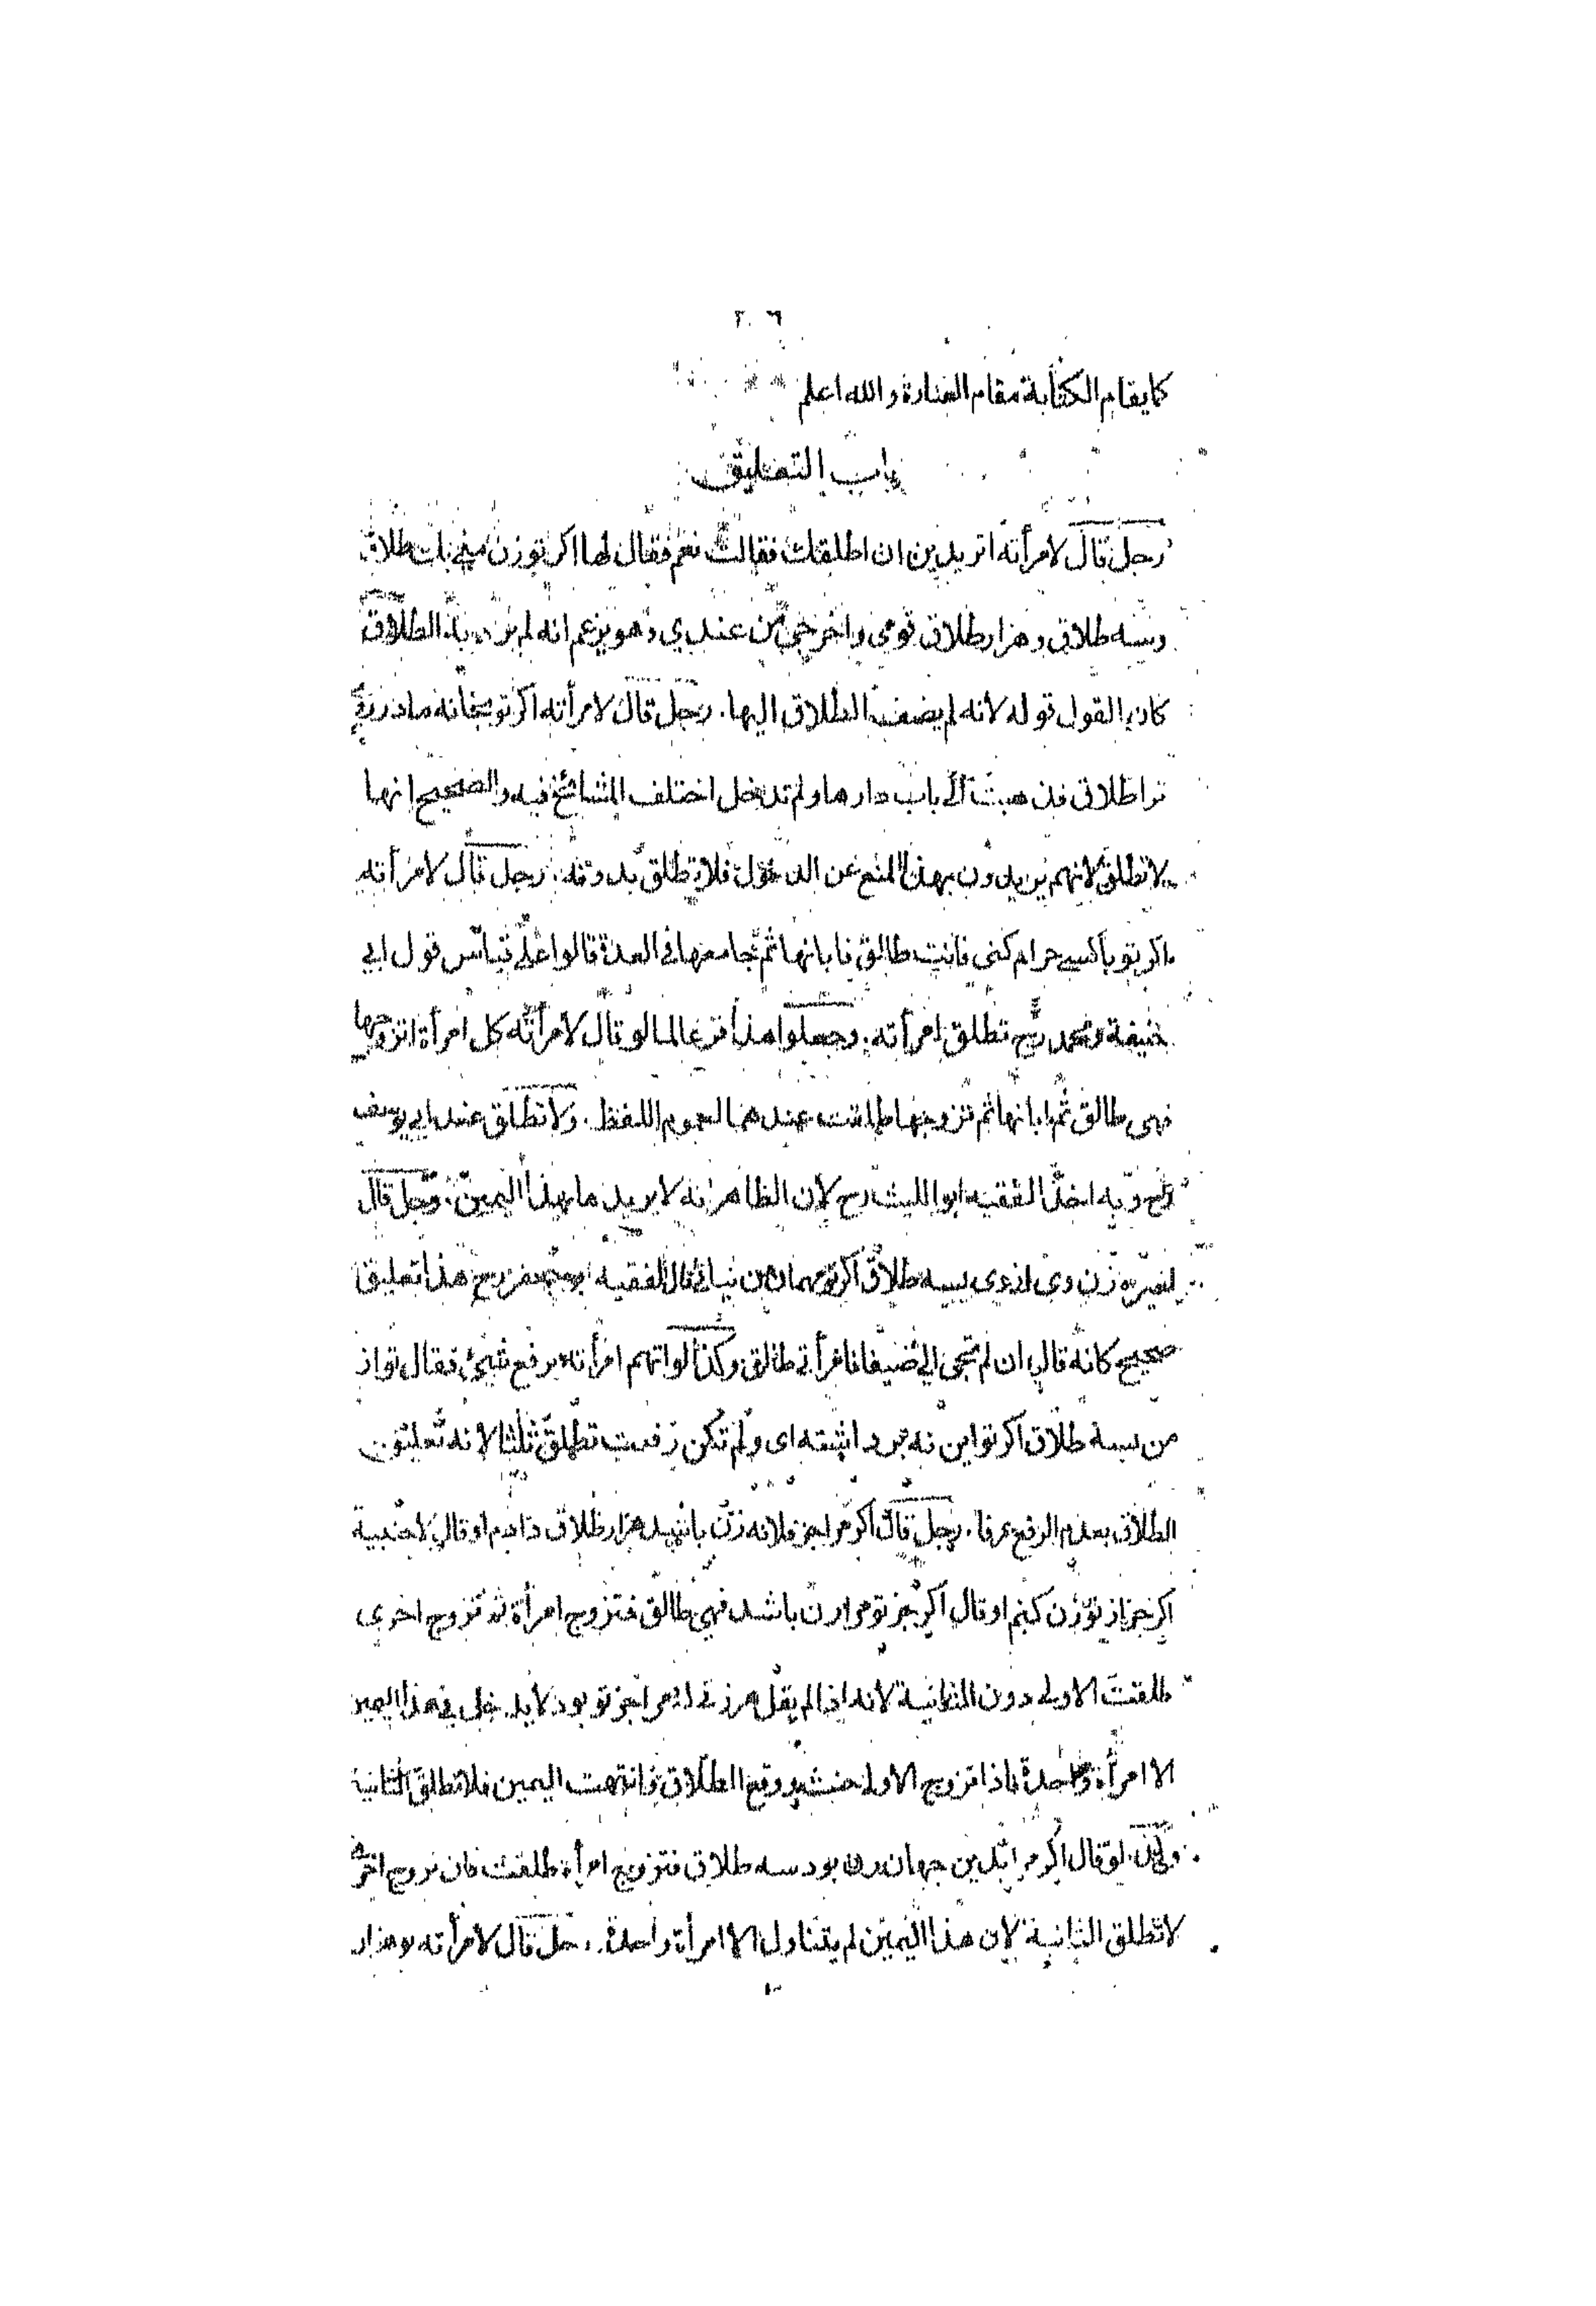 ٢٠٦
كما يقام الكتابة مقام العبارة والله اعلم
باب التعليق
رجل قال لامرأته اتريدين ان اطلقك فقالت نعم فقال لها اكر تو زن مني يك طلاق
وسه طلاق وهزار طلاق قومي واخرجي من عندي وهو يزعم انه لم يرد به الطلاق
كان القول قوله لانه لم يضف الطلاق اليها. رجل قال لامرأته اكر تو بخانه مادر روي
ترا طلاق فذهبت الى باب دارها ولم تدخل اختلف المشائخ فيه والصحيح انها
لا تطلق لانهم يريدون بهذا المنع عن الدخول فلا تطلق بدونه. رجل قال لامرأته
اكر تو باكسي حرام كني فانت طالق فابانها ثم جامعها في العدة قالوا على قياس قول ابي
حنيفة ومحمد رح تطلق امرأته. وجعلوا هذا فرعا لما لو قال لامرأته كل امرأة اتزوجها
فهي طالق ثم ابانها ثم تزوجها طلقت عندهما لعموم اللفظ. ولا تطلق عند ابي يوسف
رح وبه اخذ الفقيه ابو الليث رح لان الظاهر انه لا يريدها بهذا اليمين. رجل قال
لغيره زن وى ازوى بسه طلاق اكر تو مهمان من نيائي قال الفقيه ابو جعفر رح هذا تعليق
صحيح كانه قال ان لم تجئ الي ضيفا فامرأتي طالق وكذا لو اتهم امرأته برفع شيئ فقال تو از
من بسه طلاق اكر تو اين نه برداشته اى ولم تكن رفعت تطلق ثلثا لانه تعليق
الطلاق بعدم الرفع عرفا. رجل قال اكر مرا جز فلانه زن باشد هزار طلاق دادم او قال لاجنبية
اكر جز از تو زن كنم او قال اكر جز تو مرا زن باشد فهي طالق فتزوج امرأة ثم تزوج اخرى
طلقت الاولى دون الثانية لانه اذا لم يقل هر زنے كه مرا جز تو بود لا يدخل في هذا اليمين
الا امرأة واحدة فاذا تزوج الاولى حنث ووقع الطلاق وانتهت اليمين فلا تطلق الثانية
وكذا لو قال اكر مرا بدين جهان زن بود سه طلاق فتزوج امرأة طلقت فان تزوج اخرى
لا تطلق الثانية لان هذا اليمين لم يتناول الا امرأة واحدة. رجل قال لامرأته بوهزار